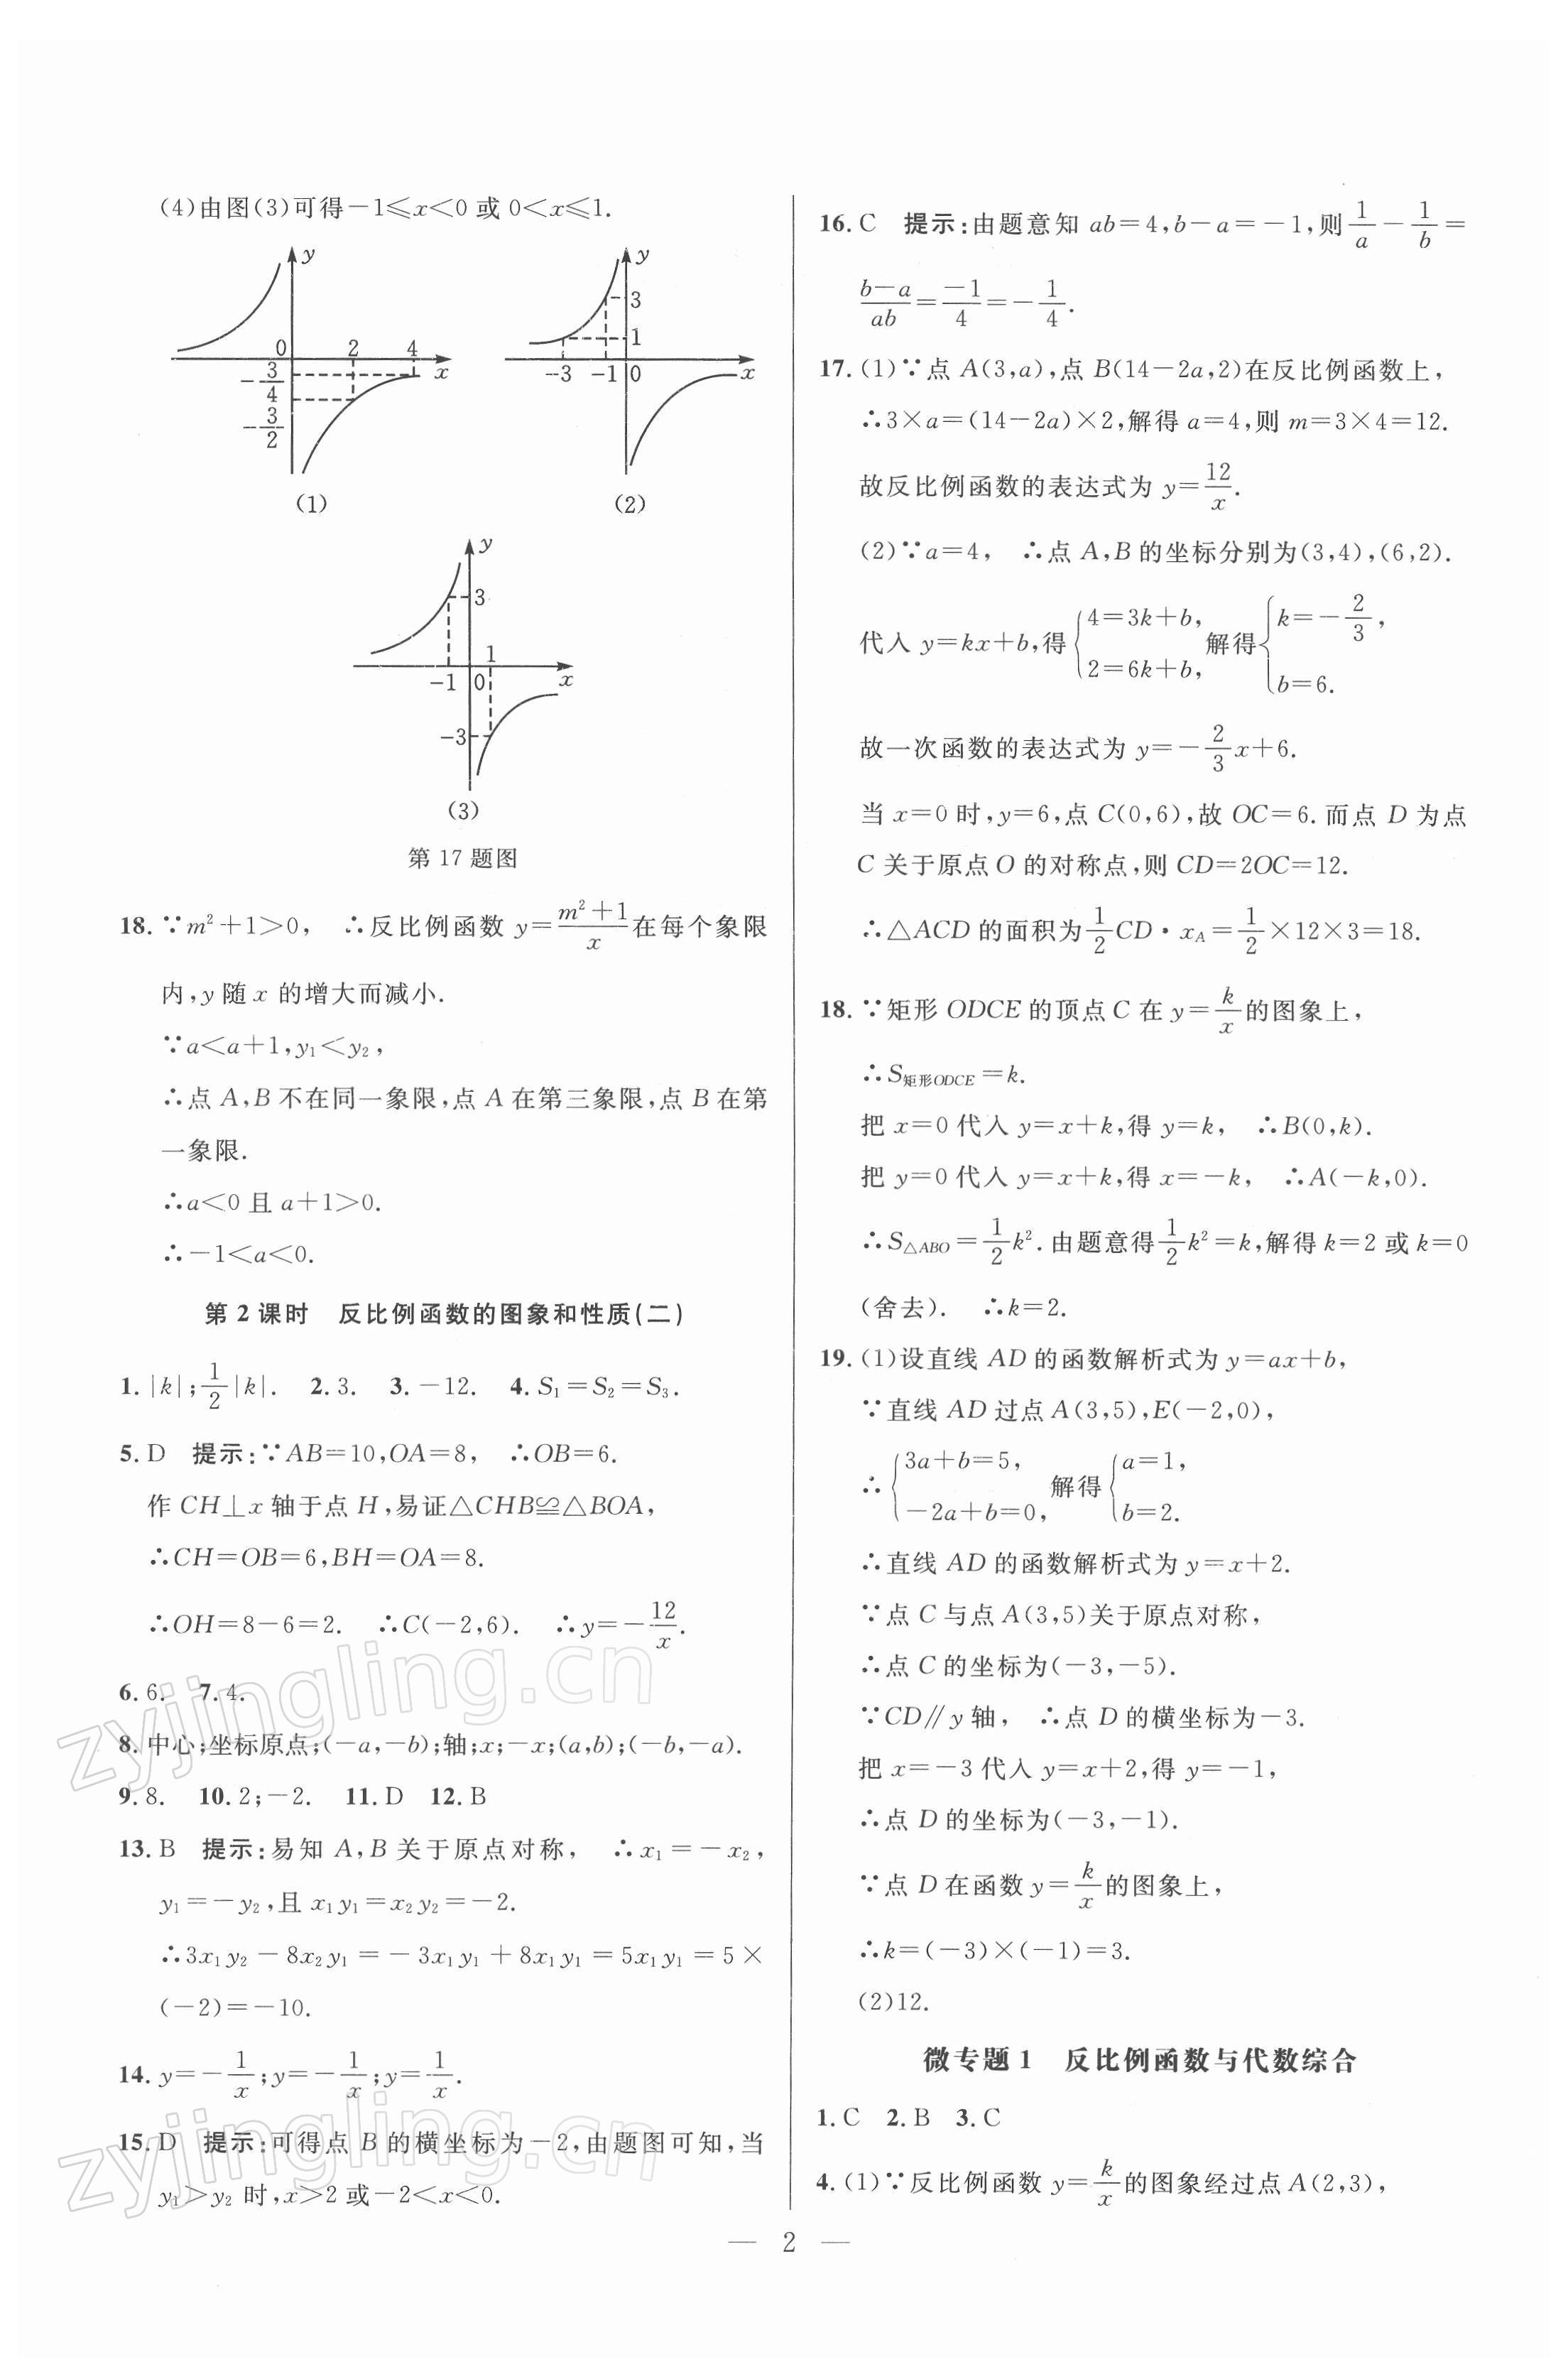 (4)由图(3)可得－1≤x＜0 或 0＜x≤1.
y
0 2 4 x
－3/4
－3/2
(1)
y
3
1
－3 －1 0 x
(2)
y
3
1
－1 0 x
－3
(3)
第 17 题图
18. ∵m²＋1＞0， ∴反比例函数 y＝(m²＋1)/x 在每个象限
内,y 随 x 的增大而减小.
∵a＜a＋1,y₁＜y₂，
∴点 A,B 不在同一象限,点 A 在第三象限,点 B 在第
一象限.
∴a＜0 且 a＋1＞0.
∴－1＜a＜0.
第 2 课时 反比例函数的图象和性质(二)
1. |k|;1/2|k|. 2. 3. 3. －12. 4. S₁＝S₂＝S₃.
5. D 提示:∵AB＝10,OA＝8， ∴OB＝6.
作 CH⊥x 轴于点 H,易证△CHB≌△BOA，
∴CH＝OB＝6,BH＝OA＝8.
∴OH＝8－6＝2. ∴C(－2,6). ∴y＝－12/x.
6. 6. 7. 4.
8. 中心;坐标原点;(－a,－b);轴;x;－x;(a,b);(－b,－a).
9. 8. 10. 2;－2. 11. D 12. B
13. B 提示:易知 A,B 关于原点对称， ∴x₁＝－x₂，
y₁＝－y₂,且 x₁y₁＝x₂y₂＝－2.
∴3x₁y₂－8x₂y₁＝－3x₁y₁＋8x₁y₁＝5x₁y₁＝5×
(－2)＝－10.
14. y＝－1/x;y＝－1/x;y＝1/x.
15. D 提示:可得点 B 的横坐标为－2,由题图可知,当
y₁＞y₂ 时,x＞2 或－2＜x＜0.
16. C 提示:由题意知 ab＝4,b－a＝－1,则 1/a－1/b＝
(b－a)/ab＝－1/4＝－1/4.
17. (1)∵点 A(3,a),点 B(14－2a,2)在反比例函数上，
∴3×a＝(14－2a)×2,解得 a＝4,则 m＝3×4＝12.
故反比例函数的表达式为 y＝12/x.
(2)∵a＝4， ∴点 A,B 的坐标分别为(3,4),(6,2).
代入 y＝kx＋b,得{4＝3k＋b, 2＝6k＋b, 解得{k＝－2/3, b＝6.
故一次函数的表达式为 y＝－2/3x＋6.
当 x＝0 时,y＝6,点 C(0,6),故 OC＝6. 而点 D 为点
C 关于原点 O 的对称点,则 CD＝2OC＝12.
∴△ACD 的面积为1/2CD·x_A＝1/2×12×3＝18.
18. ∵矩形 ODCE 的顶点 C 在 y＝k/x 的图象上，
∴S矩形ODCE＝k.
把 x＝0 代入 y＝x＋k,得 y＝k， ∴B(0,k).
把 y＝0 代入 y＝x＋k,得 x＝－k， ∴A(－k,0).
∴S△ABO＝1/2k². 由题意得1/2k²＝k,解得 k＝2 或 k＝0
(舍去). ∴k＝2.
19. (1)设直线 AD 的函数解析式为 y＝ax＋b，
∵直线 AD 过点 A(3,5),E(－2,0)，
∴{3a＋b＝5, －2a＋b＝0, 解得{a＝1, b＝2.
∴直线 AD 的函数解析式为 y＝x＋2.
∵点 C 与点 A(3,5)关于原点对称，
∴点 C 的坐标为(－3,－5).
∵CD∥y 轴， ∴点 D 的横坐标为－3.
把 x＝－3 代入 y＝x＋2,得 y＝－1，
∴点 D 的坐标为(－3,－1).
∵点 D 在函数 y＝k/x 的图象上，
∴k＝(－3)×(－1)＝3.
(2)12.
微专题 1 反比例函数与代数综合
1. C 2. B 3. C
4. (1)∵反比例函数 y＝k/x 的图象经过点 A(2,3)，
— 2 —
zyjingling.cn
zyjingling.cn